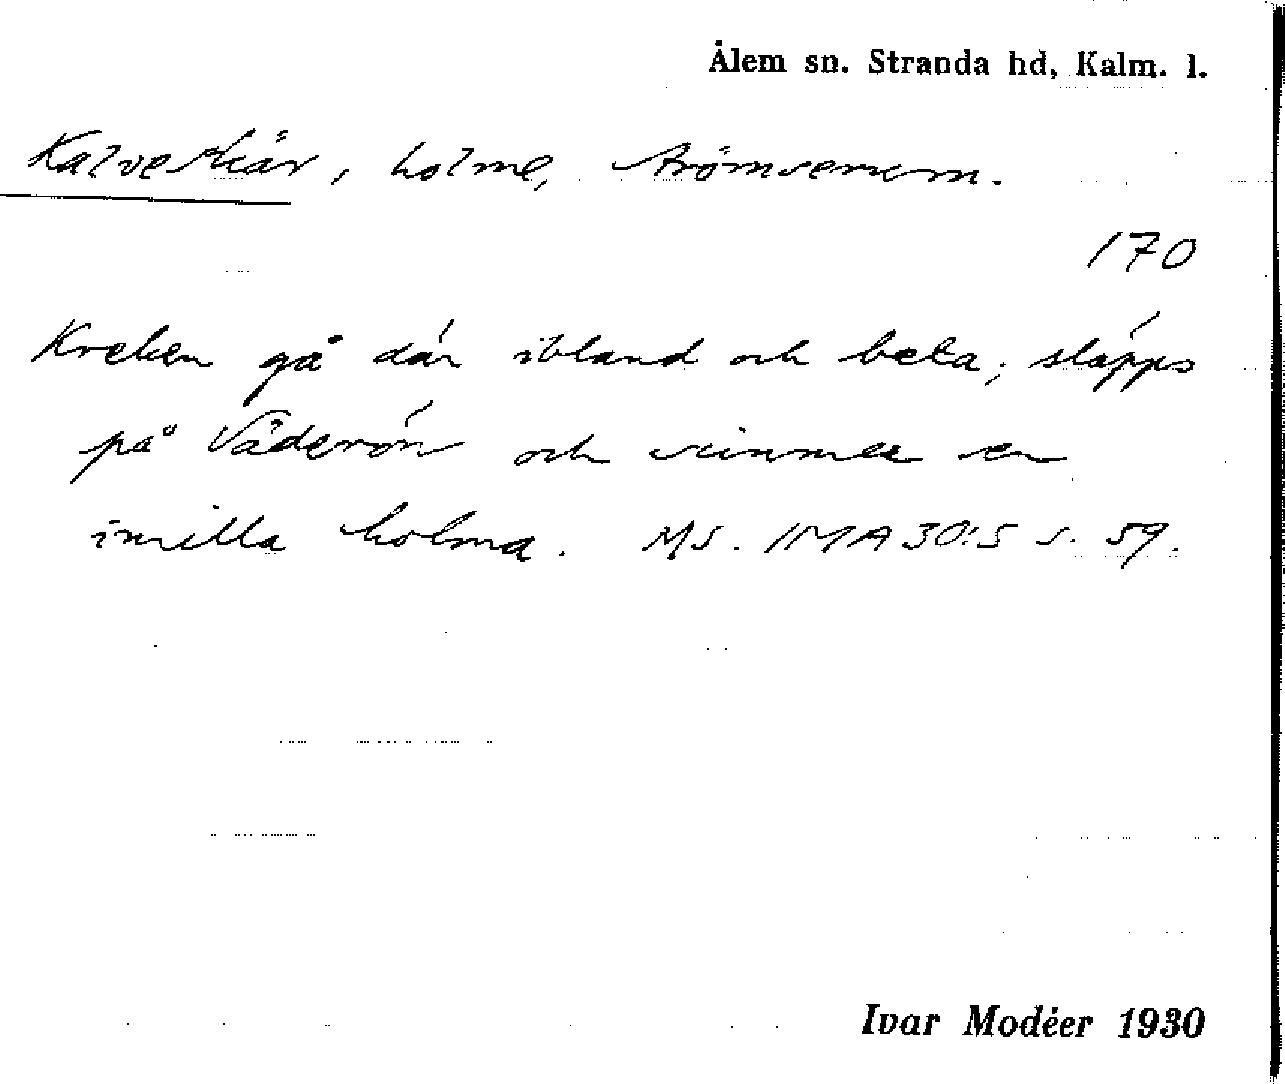 Ålem sn. Stranda hd, Kalm. l.
Kalveskär, holme, Strömserum.
170
Kreken gå där ibland och beta; släpps
på Väderön och simma en
imilla holma. MS. IMA 30:5 s. 59.
Ivar Modéer 1930